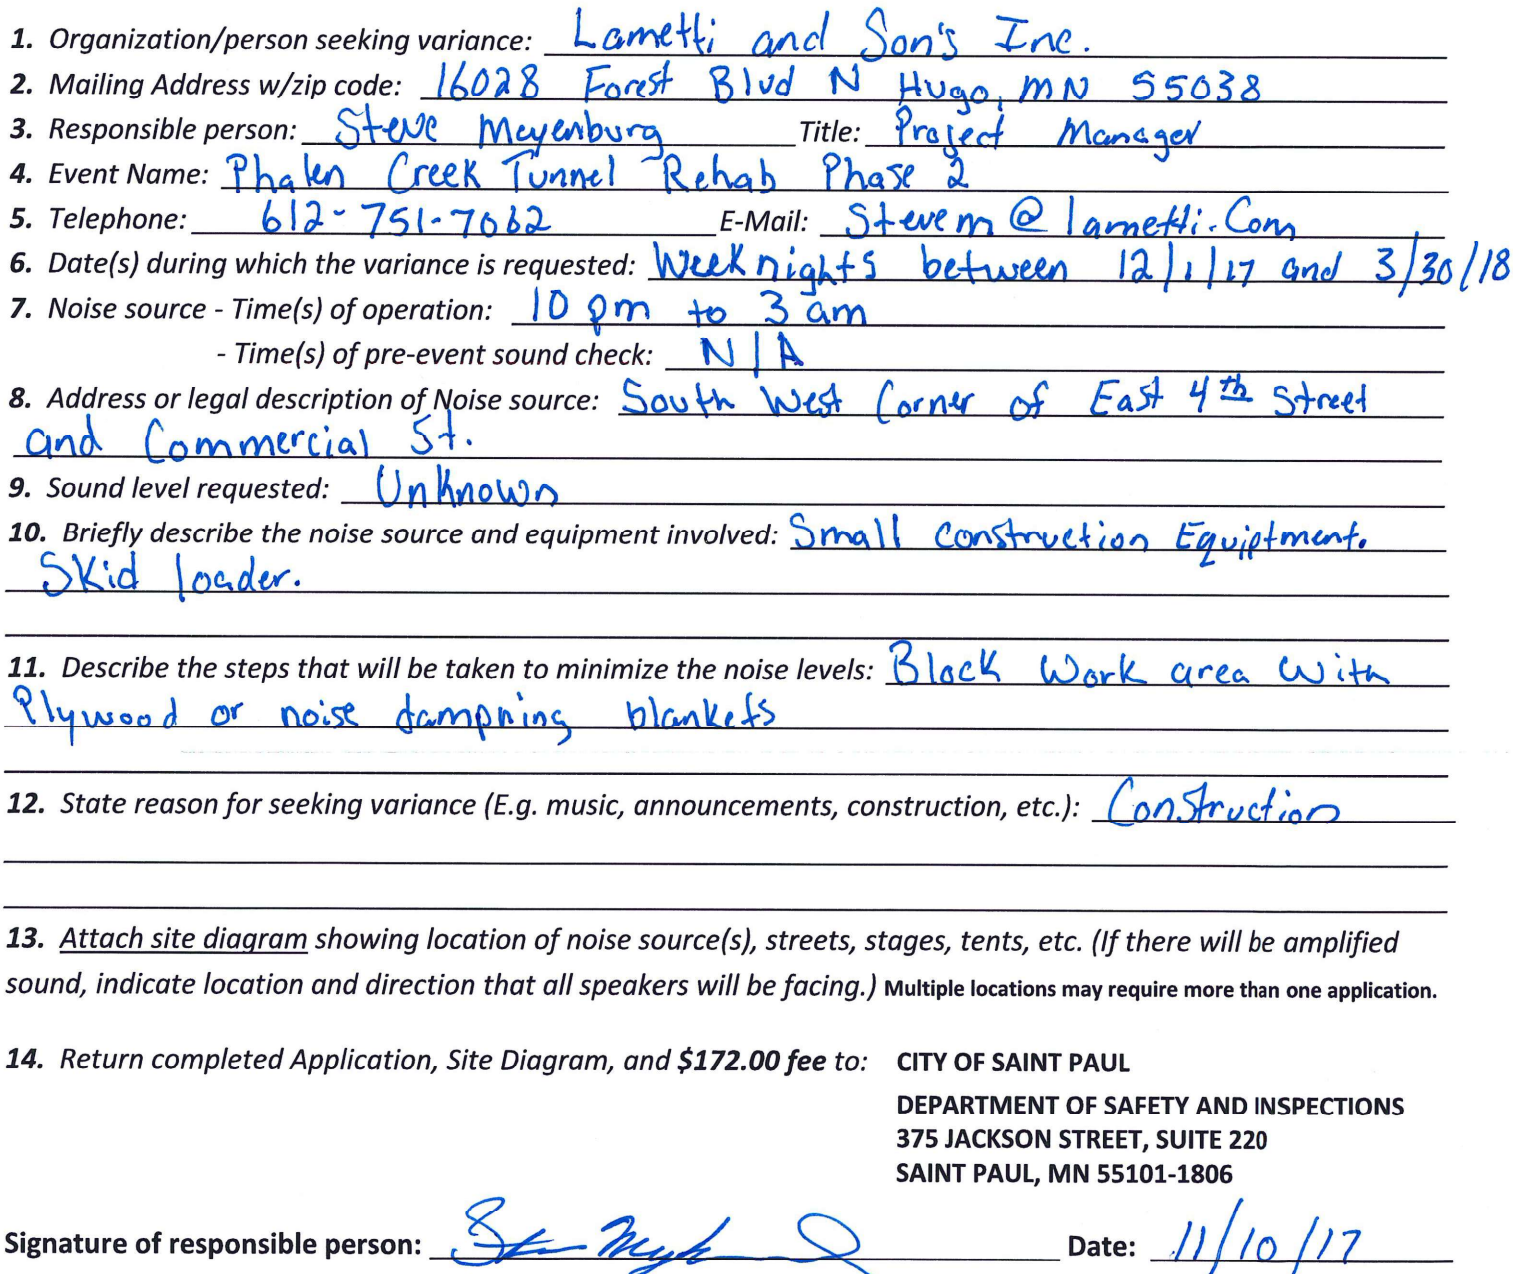 1. Organization/person seeking variance: Lametti and Son's Inc.
2. Mailing Address w/zip code: 16028 Forest Blvd N Hugo, MN 55038
3. Responsible person: Steve Meyenburg Title: Project Manager
4. Event Name: Phalen Creek Tunnel Rehab Phase 2
5. Telephone: 612-751-7062 E-Mail: Stevem@lametti.Com
6. Date(s) during which the variance is requested: Weeknights between 12/1/17 and 3/30/18
7. Noise source - Time(s) of operation: 10 pm to 3 am
- Time(s) of pre-event sound check: N/A
8. Address or legal description of Noise source: South West Corner of East 4th Street
and Commercial St.
9. Sound level requested: Unknown
10. Briefly describe the noise source and equipment involved: Small Construction Equiptment.
Skid loader.
11. Describe the steps that will be taken to minimize the noise levels: Block Work area with
Plywood or noise dampning blankets
12. State reason for seeking variance (E.g. music, announcements, construction, etc.): Construction
13. Attach site diagram showing location of noise source(s), streets, stages, tents, etc. (If there will be amplified
sound, indicate location and direction that all speakers will be facing.) Multiple locations may require more than one application.
14. Return completed Application, Site Diagram, and $172.00 fee to: CITY OF SAINT PAUL
DEPARTMENT OF SAFETY AND INSPECTIONS
375 JACKSON STREET, SUITE 220
SAINT PAUL, MN 55101-1806
Signature of responsible person: Date: 11/10/17